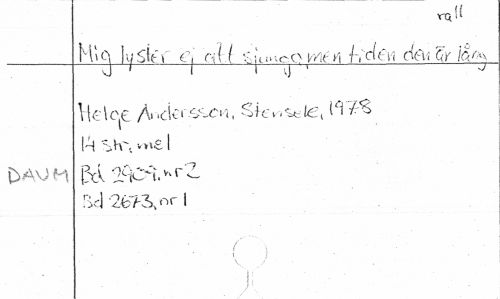 rall
Mig lyster ej att sjunga, men tiden den är lång
Helge Andersson, Stensele, 1978
14 str, mel
DAUM Bd 2909, nr 2
Bd 2673, nr 1